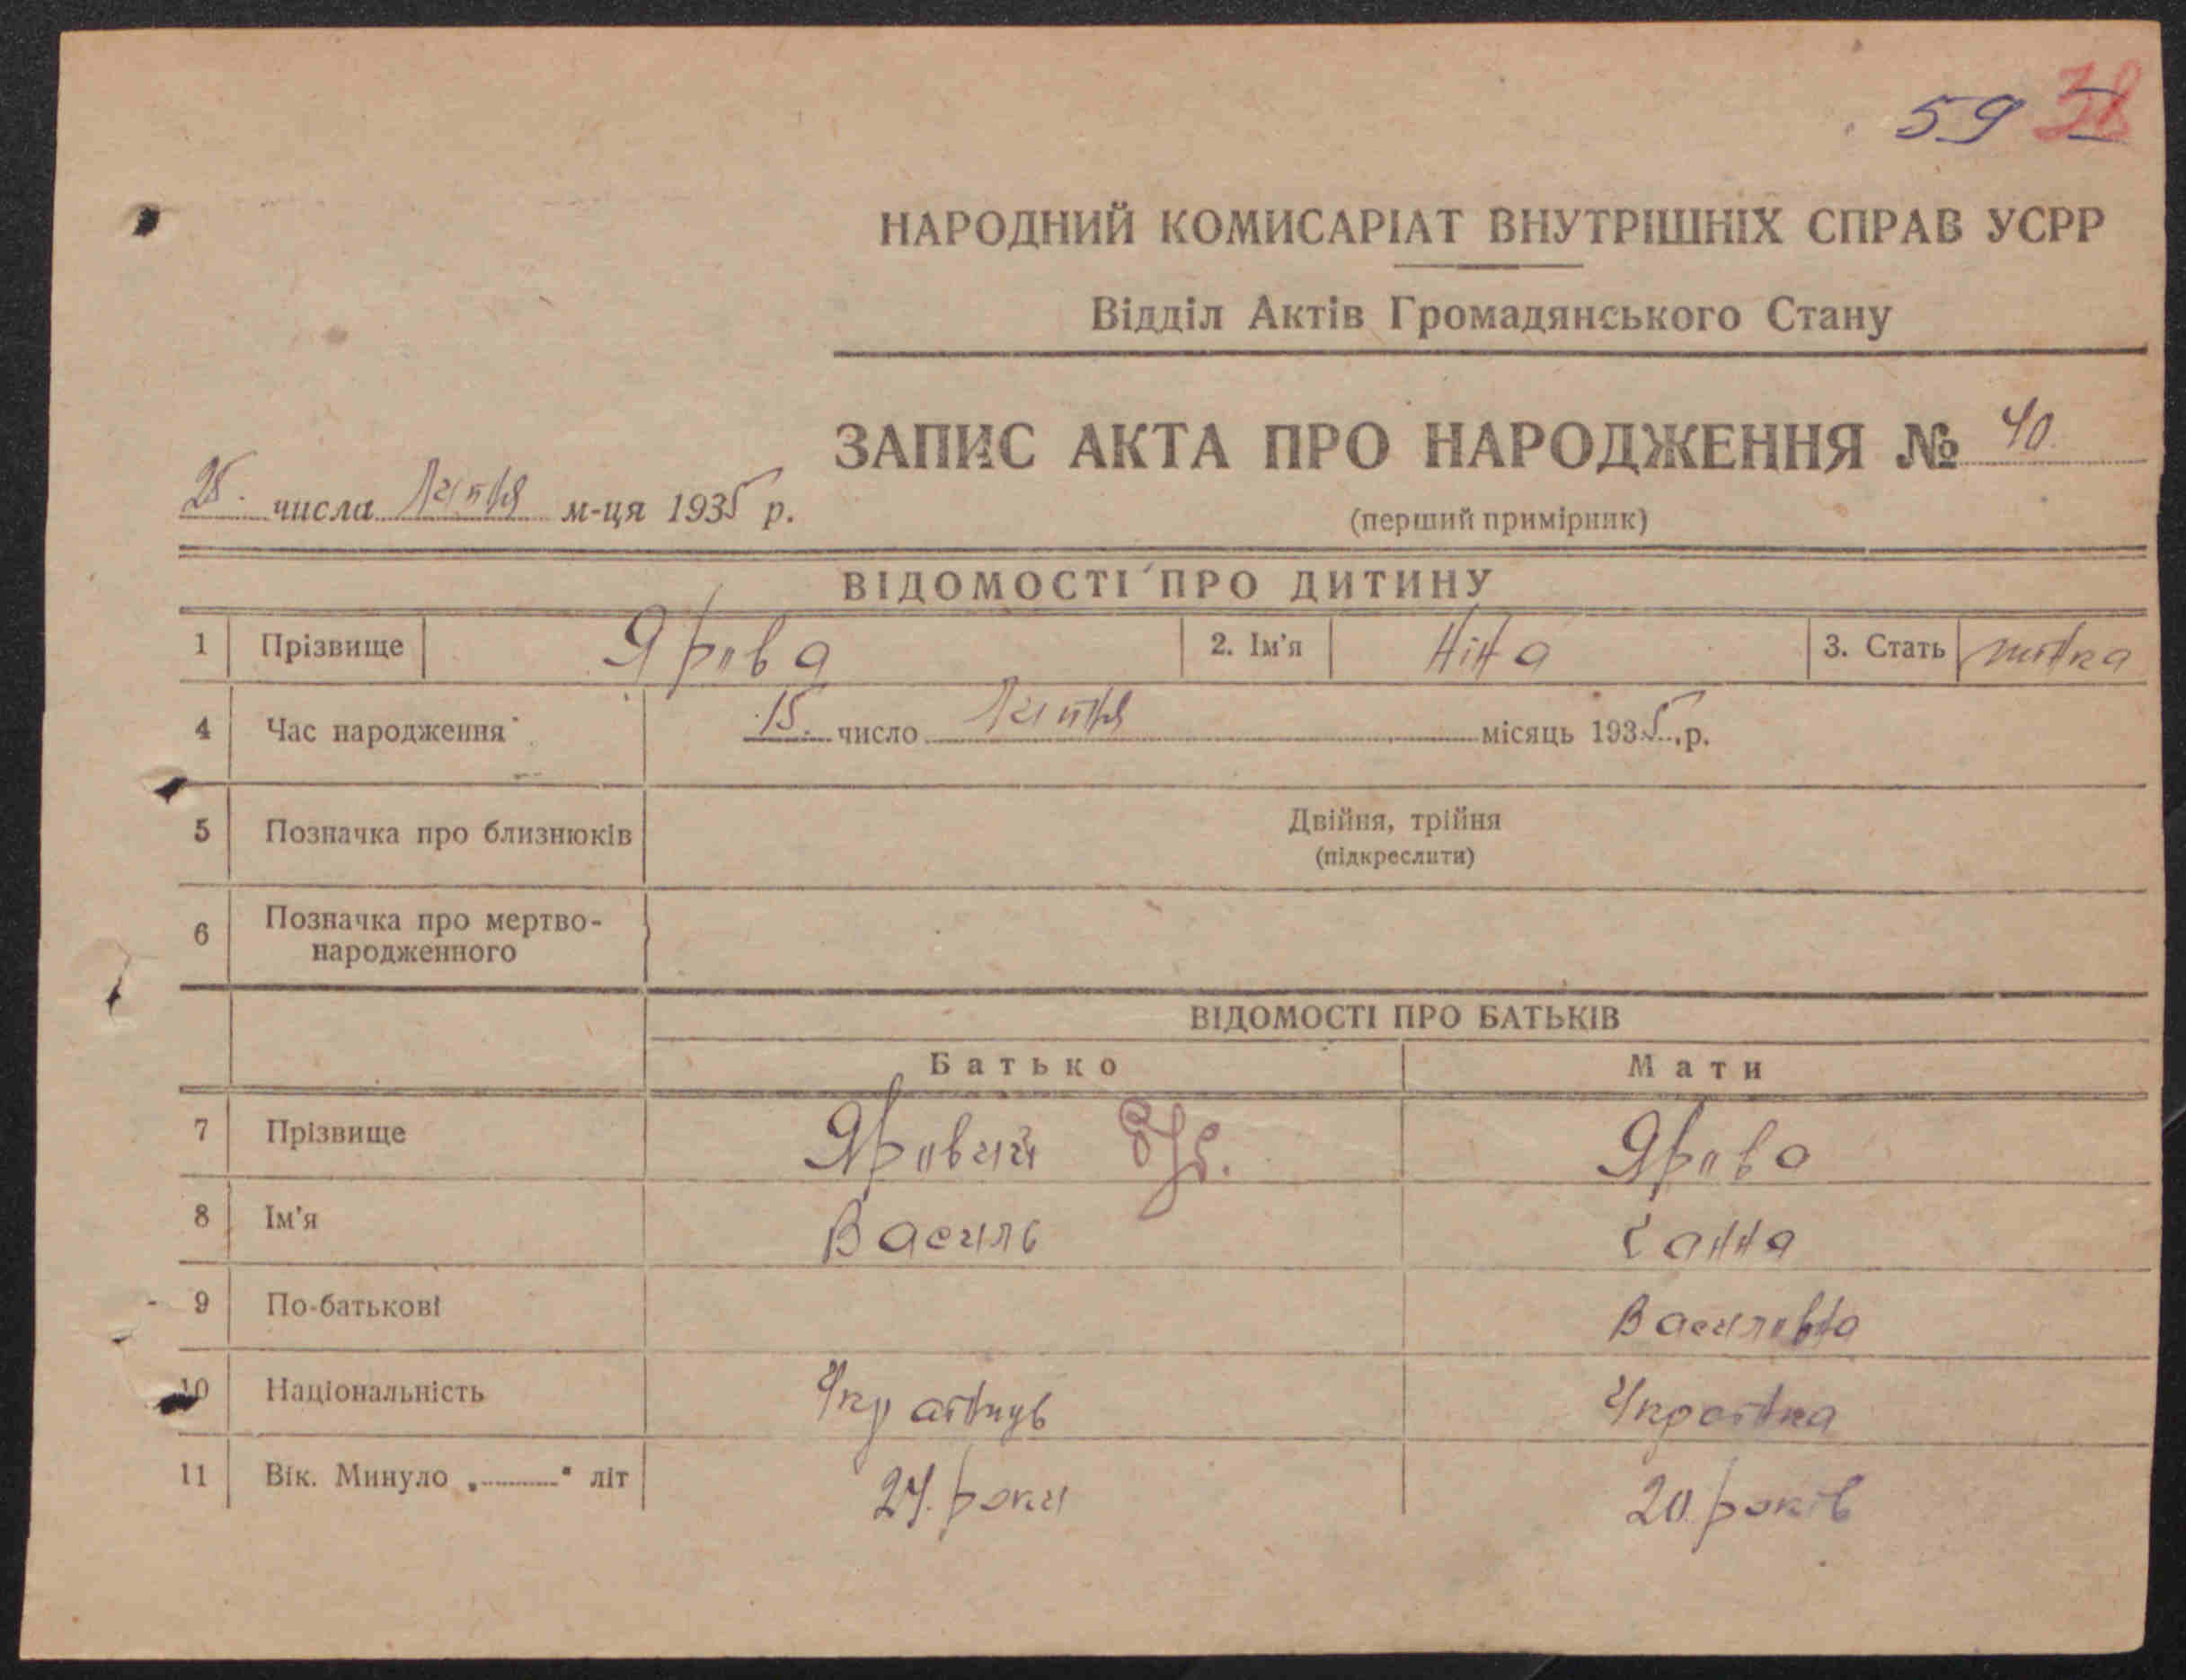 59 38
НАРОДНИЙ КОМИСАРІАТ ВНУТРІШНІХ СПРАВ УСРР
Відділ Актів Громадянського Стану
ЗАПИС АКТА ПРО НАРОДЖЕННЯ № 40.
25. числа Липня м-ця 1935 р.
(перший примірник)
ВІДОМОСТІ ПРО ДИТИНУ
1 Прізвище Ярова 2. Ім'я Ніна 3. Стать жінка
4 Час народження 15. число Липня місяць 1935 р.
5 Позначка про близнюків Двійня, трійня
(підкреслити)
6 Позначка про мертво-
народженного
ВІДОМОСТІ ПРО БАТЬКІВ
Батько Мати
7 Прізвище Яровий Ярова
8 Ім'я Василь Ганна
9 По-батькові Василовна
10 Національність Українць Українка
11 Вік. Минуло „ “ літ 24. роки 20 років